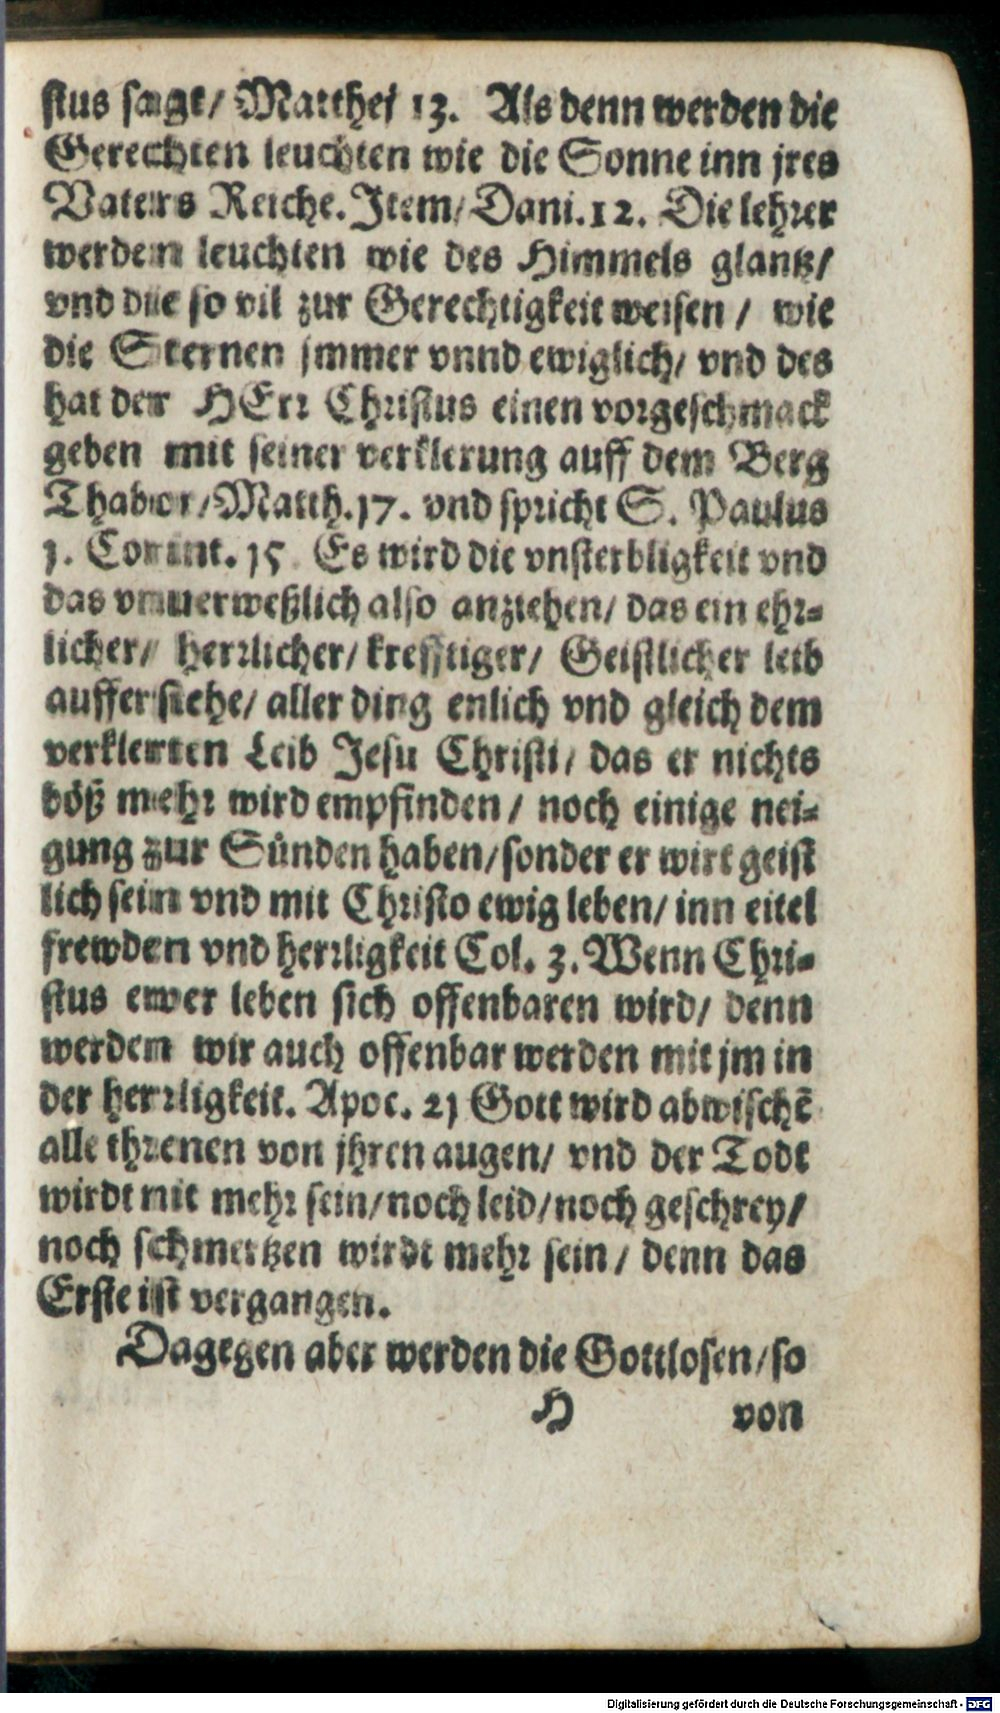 stus sagt/ Matthej 13. Als denn werden die
Gerechten leuchten wie die Sonne inn jres
Vaters Reiche. Item/ Dani. 12. Die lehrer
werden leuchten wie des Himmels glantz/
vnd die so vil zur Gerechtigkeit weisen / wie
die Sternen jmmer vnnd ewiglich/ vnd des
hat der HErr Christus einen vorgeschmack
geben mit seiner verklerung auff dem Berg
Thabor/ Matth. 17. vnd spricht S. Paulus
1. Corint. 15 Es wird die vnsterbligkeit vnd
das vnuerweßlich also anziehen/ das ein ehr-
licher/ herrlicher/ krefftiger/ Geistlicher leib
aufferstehe/ aller ding enlich vnd gleich dem
verklerten Leib Jesu Christi/ das er nichts
böß mehr wird empfinden / noch einige nei-
gung zur Sünden haben/ sonder er wirt geist
lich sein vnd mit Christo ewig leben/ inn eitel
frewden vnd herrligkeit Col. 3. Wenn Chri-
stus ewer leben sich offenbaren wird/ denn
werden wir auch offenbar werden mit jm in
der herrligkeit. Apoc. 21 Gott wird abwischē
alle threnen von jhren augen/ vnd der Todt
wirdt nit mehr sein/ noch leid/ noch geschrey/
noch schmertzen wirdt mehr sein / denn das
Erste ist vergangen.
Dagegen aber werden die Gottlosen/ so
H von
Digitalisierung gefördert durch die Deutsche Forschungsgemeinschaft - DFG